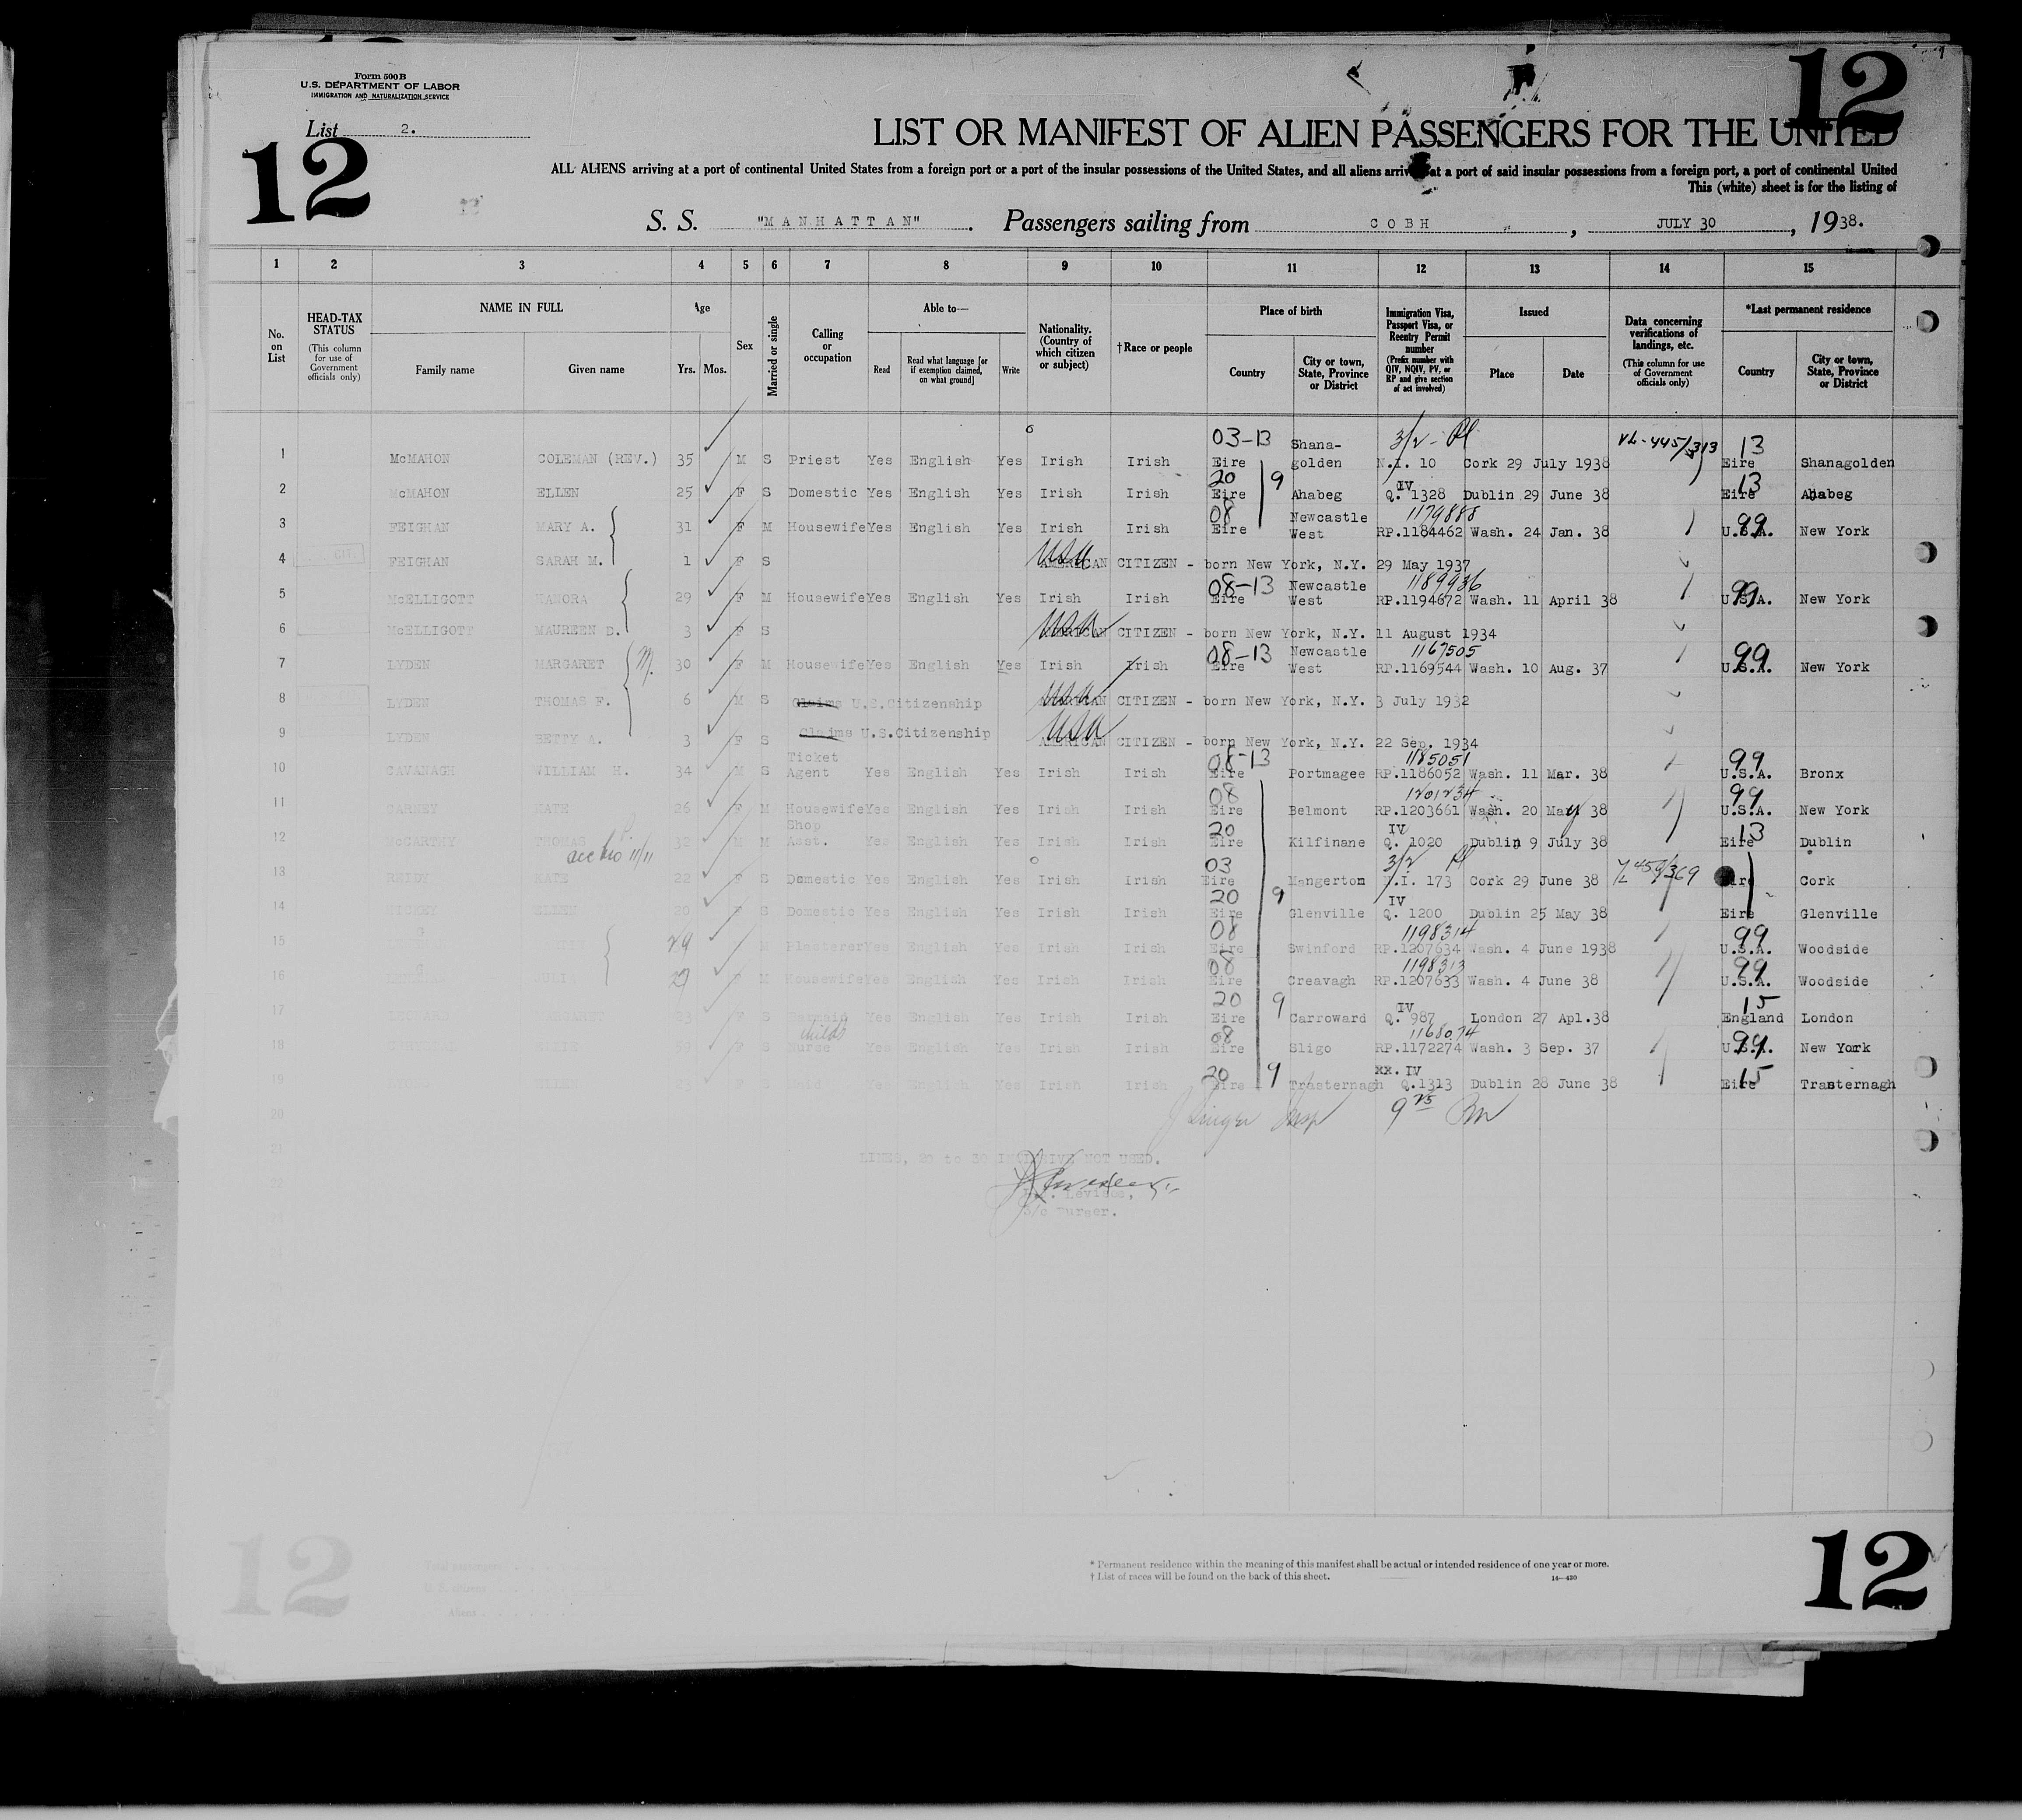 Form 500 B
U.S. DEPARTMENT OF LABOR
IMMIGRATION AND NATURALIZATION SERVICE
List 2.
12
12
LIST OR MANIFEST OF ALIEN PASSENGERS FOR THE UNITED
ALL ALIENS arriving at a port of continental United States from a foreign port or a port of the insular possessions of the United States, and all aliens arriving at a port of said insular possessions from a foreign port, a port of continental United
This (white) sheet is for the listing of
S. S. "MANHATTAN". Passengers sailing from COBH, JULY 30, 1938.
1 2 3 4 5 6 7 8 9 10 11 12 13 14 15
No. on List
HEAD-TAX STATUS
(This column for use of Government officials only)
NAME IN FULL
Family name
Given name
Age
Yrs. Mos.
Sex
Married or single
Calling or occupation
Able to—
Read
Read what language [or if exemption claimed, on what ground]
Write
Nationality. (Country of which citizen or subject)
†Race or people
Place of birth
Country
City or town, State, Province or District
Immigration Visa, Passport Visa, or Reentry Permit number
(Prefix number with QIV, NQIV, PV, or RP and give section of act involved)
Issued
Place
Date
Data concerning verifications of landings, etc.
(This column for use of Government officials only)
*Last permanent residence
Country
City or town, State, Province or District
03-13 3/2 13
1 McMAHON COLEMAN (REV.) 35 M S Priest Yes English Yes Irish Irish Eire Shana-golden N.I. 10 Cork 29 July 1938 Eire Shanagolden
20 9 IV 13
2 McMAHON ELLEN 25 F S Domestic Yes English Yes Irish Irish Eire Ahabeg Q. 1328 Dublin 29 June 38 Eire Ahabeg
08 1179888 99
3 FEIGHAN MARY A. 31 F M Housewife Yes English Yes Irish Irish Eire Newcastle West RP.1184462 Wash. 24 Jan. 38 U.S.A. New York
USA
4 FEIGHAN SARAH M. 1 F S AMERICAN CITIZEN - born New York, N.Y. 29 May 1937
08-13 1189936 99
5 McELLIGOTT HANORA 29 F M Housewife Yes English Yes Irish Irish Eire Newcastle West RP.1194672 Wash. 11 April 38 U.S.A. New York
USA
6 McELLIGOTT MAUREEN D. 3 F S AMERICAN CITIZEN - born New York, N.Y. 11 August 1934
08-13 1167505 99
7 LYDEN MARGARET M. 30 F M Housewife Yes English Yes Irish Irish Eire Newcastle West RP.1169544 Wash. 10 Aug. 37 U.S.A. New York
USA
8 LYDEN THOMAS F. 6 M S Claims U.S.Citizenship AMERICAN CITIZEN - born New York, N.Y. 3 July 1932
USA
9 LYDEN BETTY A. 3 F S Claims U.S.Citizenship AMERICAN CITIZEN - born New York, N.Y. 22 Sep. 1934
08-13 1185051 99
10 CAVANAGH WILLIAM H. 34 M S Ticket Agent Yes English Yes Irish Irish Eire Portmagee RP.1186052 Wash. 11 Mar. 38 U.S.A. Bronx
08 1201234 99
11 CARNEY KATE 26 F M Housewife Yes English Yes Irish Irish Eire Belmont RP.1203661 Wash. 20 May 38 U.S.A. New York
20 IV 13
12 McCARTHY THOMAS 32 M M Shop Asst. Yes English Yes Irish Irish Eire Kilfinane Q. 1020 Dublin 9 July 38 Eire Dublin
03 3/2
13 REIDY KATE 22 F S Domestic Yes English Yes Irish Irish Eire Mangerton N.I. 173 Cork 29 June 38 Eire Cork
20 9 IV
14 HICKEY ELLEN 20 F S Domestic Yes English Yes Irish Irish Eire Glenville Q. 1200 Dublin 25 May 38 Eire Glenville
08 1198314 99
15 29 M Plasterer Yes English Yes Irish Irish Eire Swinford RP.1207634 Wash. 4 June 1938 U.S.A. Woodside
08 1198313 99
16 29 F M Housewife Yes English Yes Irish Irish Eire Creavagh RP.1207633 Wash. 4 June 38 U.S.A. Woodside
20 9 IV 15
17 MARGARET 23 F S Barmaid Yes English Yes Irish Irish Eire Carroward Q. 987 London 27 Apl.38 England London
Childs 08 1168074 99
18 59 F S Nurse Yes English Yes Irish Irish Eire Sligo RP.1172274 Wash. 3 Sep. 37 U.S.A. New York
20 9 xx. IV 15
19 F S Maid Yes English Yes Irish Irish Eire Trasternagh Q.1313 Dublin 28 June 38 Eire Trasternagh
20
21
LINES, 20 to 30 INCLUSIVE NOT USED.
22
Purser.
12
12
Total passengers
U. S. citizens
Aliens
* Permanent residence within the meaning of this manifest shall be actual or intended residence of one year or more.
† List of races will be found on the back of this sheet.
14—430